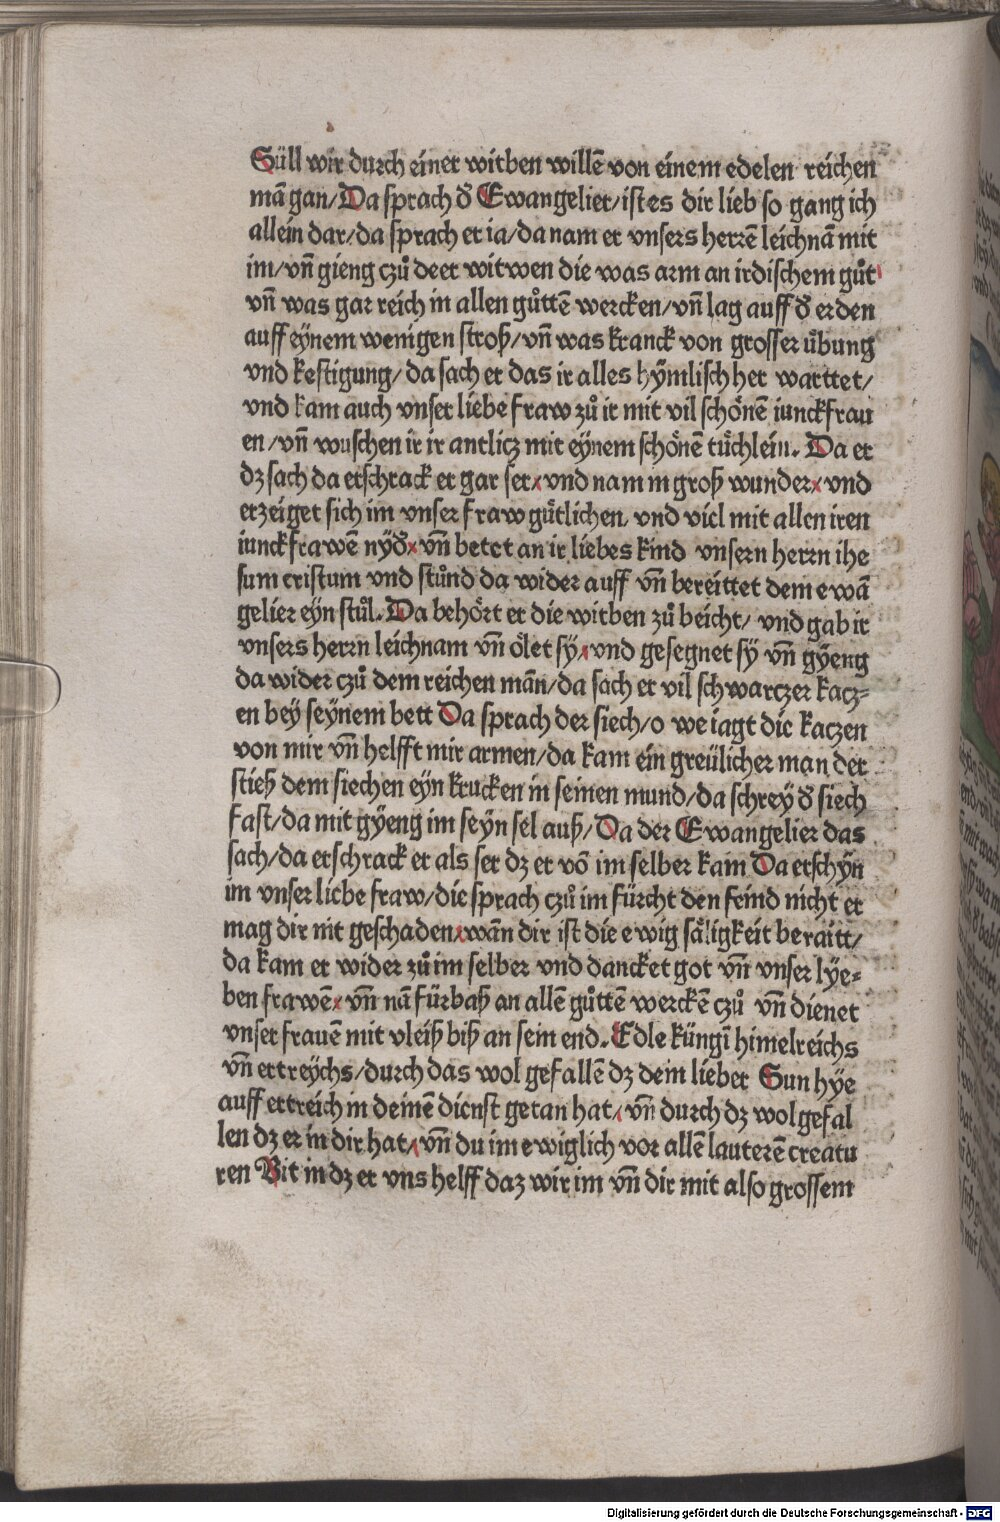 Süll wir durch einer witben willē von einem edelen reichen
mā gan/Da sprach đ Ewangelier/ist es dir lieb so gang ich
allein dar/da sprach er ia/da nam er vnsers herrē leichnā mit
im/vñ gieng czů deer witwen die was arm an irdischem gůt
vñ was gar reich in allen gůttē wercken/vñ lag auff đ erden
auff eÿnem wenigen stroß/vñ was kranck von grosser ůbung
vnd kestigung/da sach er das ir alles hÿmlisch her warttet/
vnd kam auch vnser liebe fraw zů ir mit vil schoͤnē iunckfrau
en/vñ wuschen ir ir antlicz mit eÿnem schoͤnē tuͤchlein. Da er
dz sach da erschrack er gar ser vnd nam in groß wunder vnd
erzeiget sich im vnser fraw guͤtlichen. vnd viel mit allen iren
iunckfrawē nÿđ vñ betet an ir liebes kind vnsern herrn ihe
sum cristum vnd stůnd da wider auff vñ bereittet dem ewā
gelier eÿn stůl. Da behoͤrt er die witben zů beicht/ vnd gab ir
vnsers herrn leichnam vñ oͤlet sÿ/vnd gesegnet sÿ vñ gÿeng
da wider czů dem reichen mān/da sach er vil schwarczer kacz⸗
en beÿ seÿnem bett Da sprach der siech/o we iagt die kaczen
von mir vñ helfft mir armen/da kam ein greülicher man der
stieß dem siechen eÿn krucken in seinen mund/da schreÿ đ siech
fast/da mit gÿeng im seÿn sel auß/Da der Ewangelier das
sach/da erschrack er als ser dz er vō im selber kam Da erschÿn
im vnser liebe fraw/die sprach czů im fürcht den feind nicht er
mag dir nit geschaden wān dir ist die ewig saͤligkeit beraitt/
da kam er wider zů im selber vnd dancket got vñ vnser lÿe⸗
ben frawē vñ nā fürbaß an allē gůttē werckē czů vñ dienet
vnser frauē mit vleiß biß an sein end. Edle küngī himelreichs
vñ ertreÿchs/durch das wol gefallē dz dein lieber Sun hÿe
auff ertreich in deinē dienst getan hat/vñ durch dz wolgefal
len dz er in dir hat/vñ du im ewiglich vor allē lauterē creatu
ren Bit in dz er vns helff daz wir im vñ dir mit also grossem
Digitalisierung gefördert durch die Deutsche Forschungsgemeinschaft - DFG